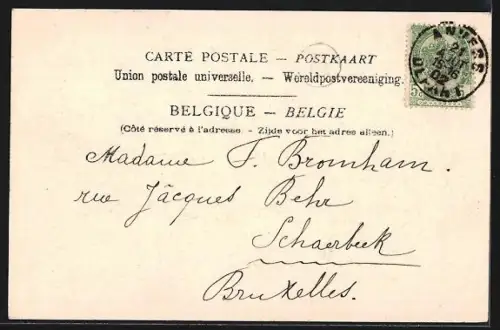 CARTE POSTALE — POSTKAART
Union postale universelle. — Wereldpostvereeniging.
BELGIQUE — BELGIE
(Côté réservé à l'adresse. - Zijde voor het adres alleen.)
ANVERS
Madame F. Bromham.
rue Jâcques Behr
Schaerbeek
Bruxelles.